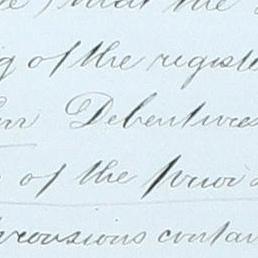 that the
of the regist
Debentures
of the provi
rovisions contai